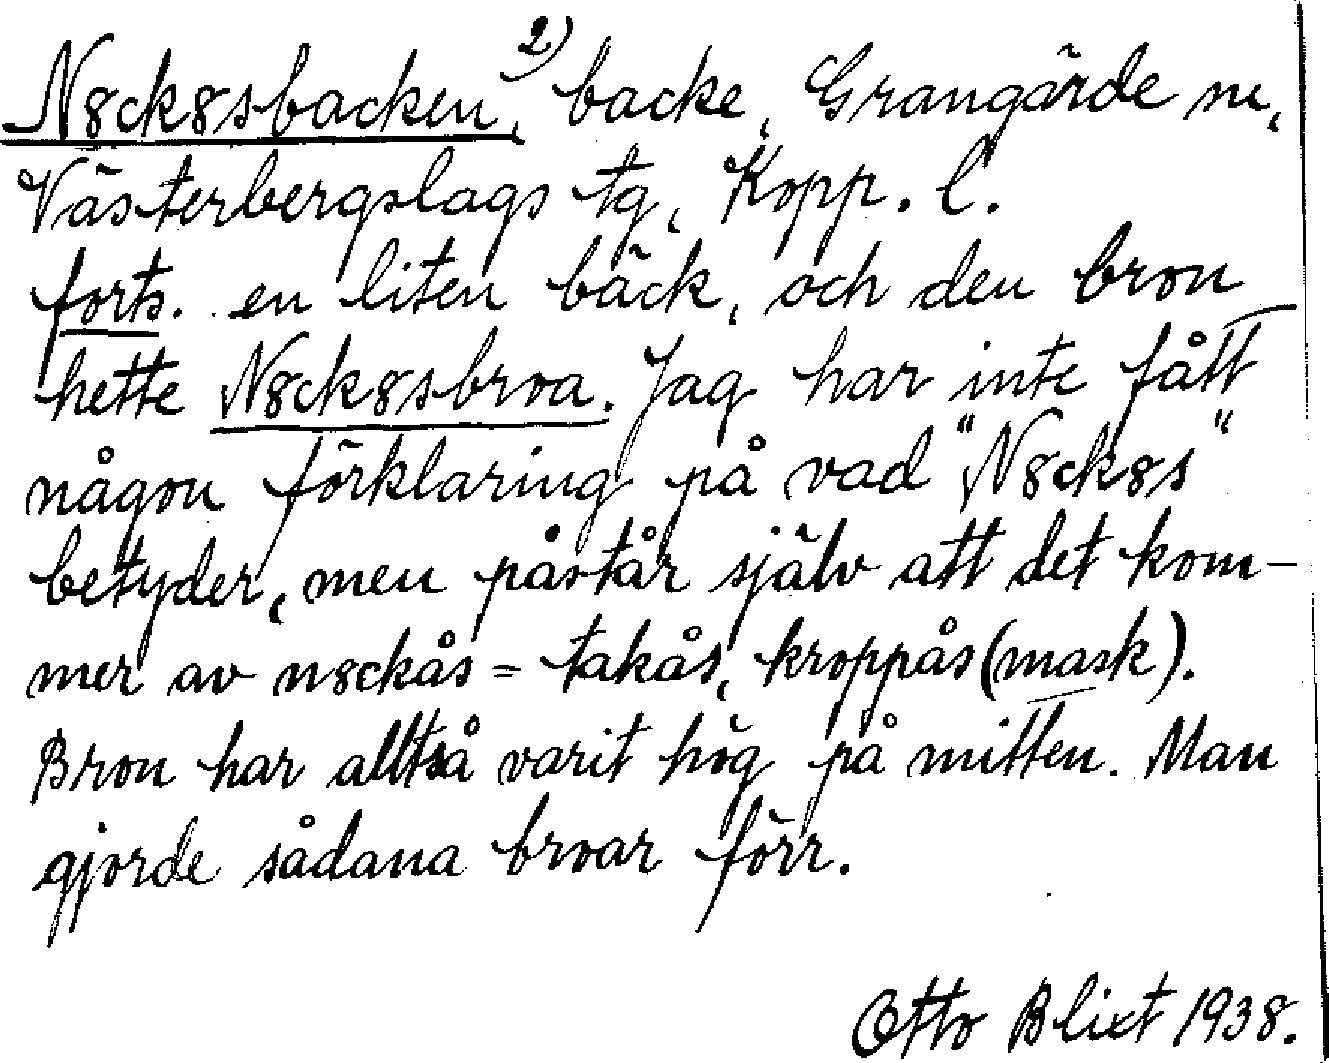 N8ck8sbacken, 2) backe, Grangärde sn,
Västerbergslags tg, Kopp. l.
forts. en liten bäck, och den bron
hette N8ck8sbroa. Jag har inte fått
någon förklaring på vad "N8ck8s"
betyder, men påstår själv att det kom-
mer av n8ckås = takås, kroppås (mask).
Bron har alltså varit hög på mitten. Man
gjorde sådana broar förr.
Otto Blixt 1938.